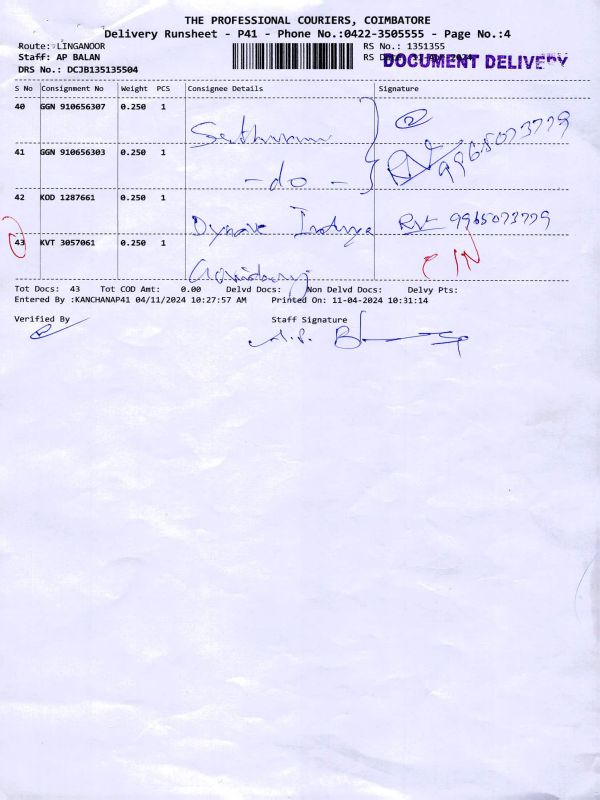 THE PROFESSIONAL COURIERS, COIMBATORE
Delivery Runsheet - P41 - Phone No.:0422-3505555 - Page No.:4
Route: LINGANOOR
RS No.: 1351355
Staff: AP BALAN
RS
DOCUMENT DELIVERY
DRS No.: DCJB135135504
S No Consignment No Weight PCS Consignee Details Signature
40 GGN 910656307 0.250 1
41 GGN 910656303 0.250 1 - do - 9965073779
42 KOD 1287661 0.250 1 9965073779
43 KVT 3057061 0.250 1
Tot Docs: 43 Tot COD Amt: 0.00 Delvd Docs: Non Delvd Docs: Delvy Pts:
Entered By :KANCHANAP41 04/11/2024 10:27:57 AM Printed On: 11-04-2024 10:31:14
Verified By Staff Signature